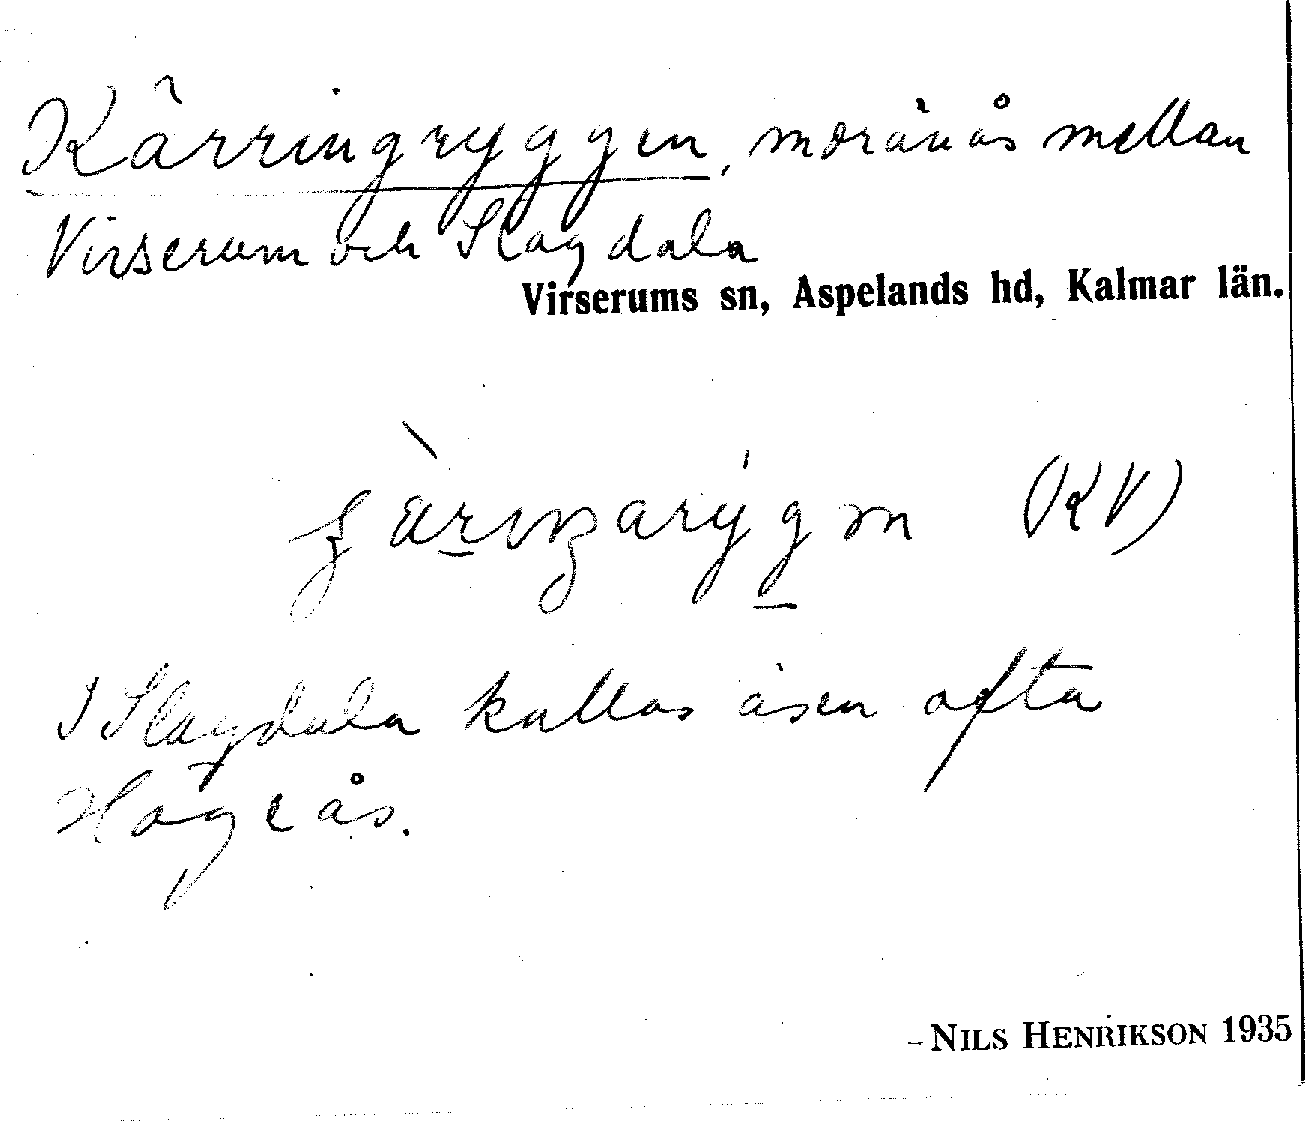 Kärringryggen, moränås mellan
Virserum och Slagdala
Virserums sn, Aspelands hd, Kalmar län.
(KV)
I Slagdala kallas åsen ofta
Högeås.
NILS HENRIKSON 1935